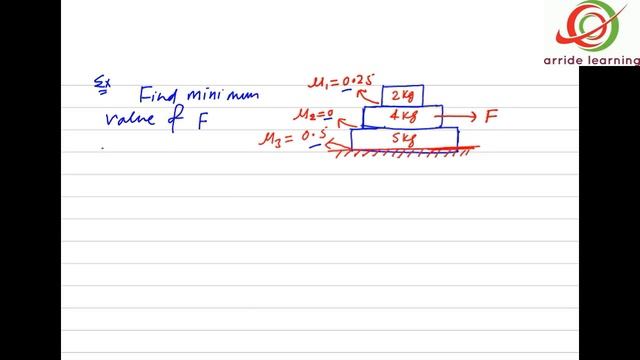 arride learning
Ex Find minimum
value of F
μ₁ = 0.25
2 kg
μ₂ = 0
4 kg
F
μ₃ = 0.5
5 kg